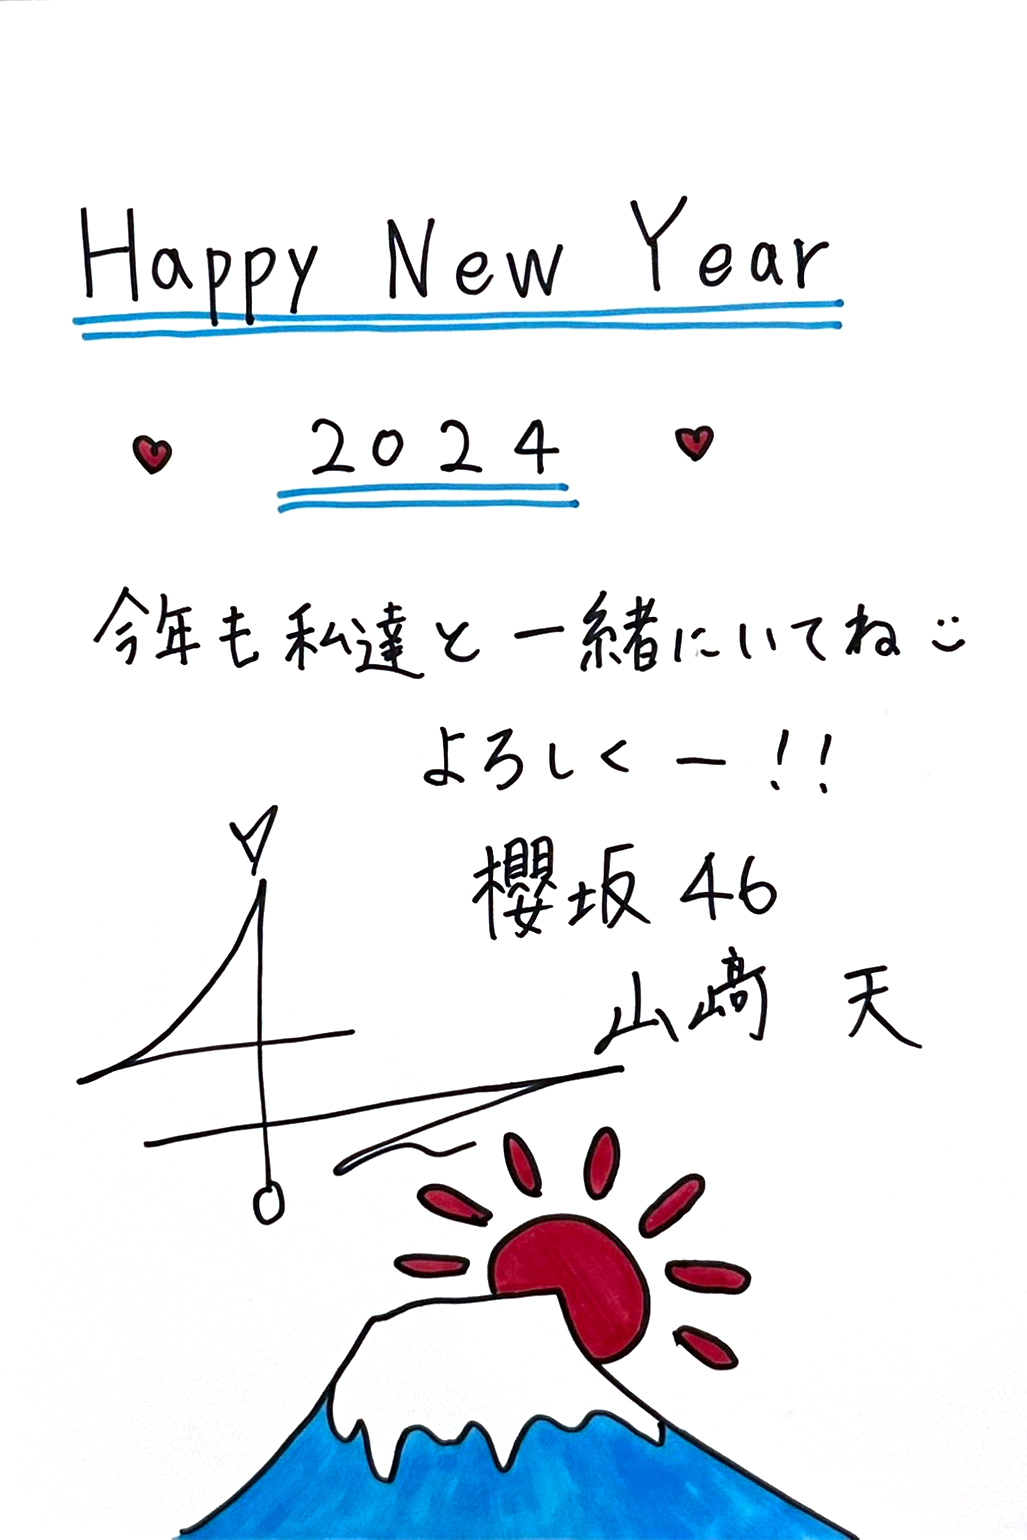 Happy New Year
2024
今年も私達と一緒にいてね
よろしくー!!
櫻坂46
山﨑 天